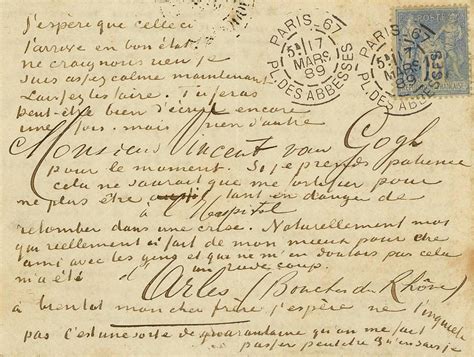 J'espère que celleci
j'arrive en bon état
ne craignons rien je
suis assez calme maintenant
Laissez les faire. Tu feras
peut-être bien d'écrire encore
une fois. mais rien d'autre
Monsieur Vincent van Gogh
pour le moment. Si je prends patience
cela ne saurait que me fortifier pour
ne plus être tant en danger de
à l'Hopital
retomber dans une crise. Naturellement moi
qui reellement ai fait de mon mieux pour être
ami avec les gens et qui ne m'en doutais pas cela
m'a été un rude coup.
d'Arles (Bouches du Rhône)
à bientot mon cher frère j'espère ne t'inquiete
pas c'est une sorte de quarantaine qu'on me fait
passer peutetre qu'en sais je
PARIS_67
5E 17
MARS
89
PL. DES ABBESSES
PARIS_67
5E 17
MARS
89
PL. DES ABBESSES
POSTE